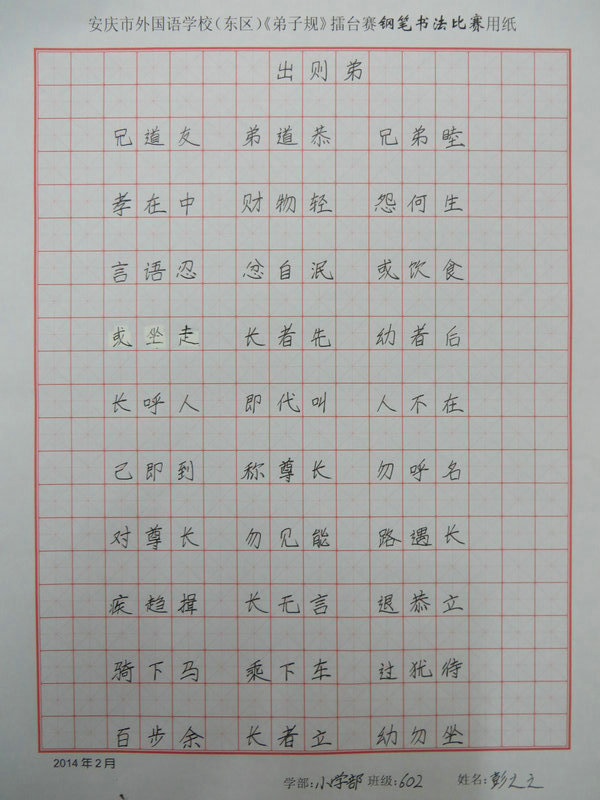 安庆市外国语学校(东区)《弟子规》擂台赛钢笔书法比赛用纸
出则弟
兄道友 弟道恭 兄弟睦
孝在中 财物轻 怨何生
言语忍 忿自泯 或饮食
或坐走 长者先 幼者后
长呼人 即代叫 人不在
己即到 称尊长 勿呼名
对尊长 勿见能 路遇长
疾趋揖 长无言 退恭立
骑下马 乘下车 过犹待
百步余 长者立 幼勿坐
2014年2月
学部:小学部 班级:602 姓名:彭